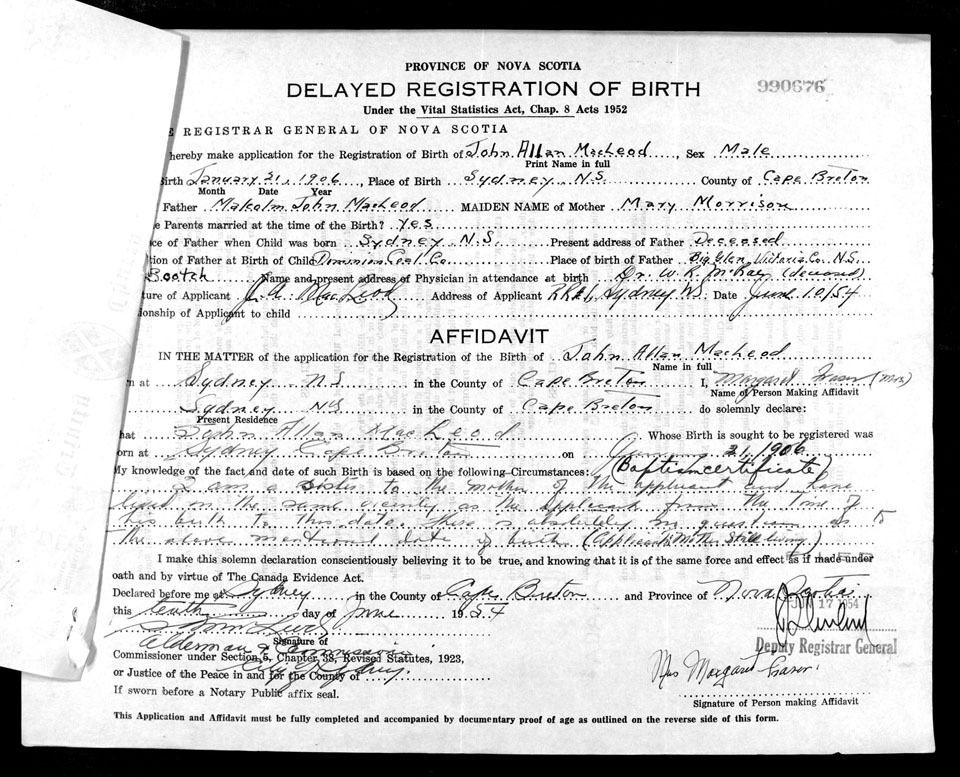 PROVINCE OF NOVA SCOTIA
DELAYED REGISTRATION OF BIRTH
990676
Under the Vital Statistics Act, Chap. 8 Acts 1952
E REGISTRAR GENERAL OF NOVA SCOTIA
hereby make application for the Registration of Birth of John Allan MacLeod, Sex Male
Print Name in full
Birth January 21, 1906, Place of Birth Sydney N.S. County of Cape Breton
Month Date Year
Father Malcolm John MacLeod MAIDEN NAME of Mother Mary Morrison
e Parents married at the time of the Birth? Yes
ce of Father when Child was born Sydney N.S. Present address of Father Deceased
tion of Father at Birth of Child Dominion Coal Co. Place of birth of Father Big Glen, Victoria Co. N.S.
Name and present address of Physician in attendance at birth Dr. W. R. McKay (deceased)
ture of Applicant J. A. MacLeod Address of Applicant Sydney NS. Date June 10/54
ionship of Applicant to child
AFFIDAVIT
IN THE MATTER of the application for the Registration of the Birth of John Allan MacLeod
Name in full
n at Sydney N S in the County of Cape Breton I, Margaret Fraser (Mrs)
Name of Person Making Affidavit
Sydney NS in the County of Cape Breton do solemnly declare:
Present Residence
hat John Allan MacLeod Whose Birth is sought to be registered was
orn at Sydney Cape Breton on January 21, 1906
My knowledge of the fact and date of such Birth is based on the following Circumstances: (Baptism certificate)
I am a sister to the mother of the applicant and have
lived in the same vicinity as the applicant from the time of
his birth to this date. There is absolutely no question as to
the above mentioned date of birth (Applicants Mother Still living)
I make this solemn declaration conscientiously believing it to be true, and knowing that it is of the same force and effect as if made under
oath and by virtue of The Canada Evidence Act.
Declared before me at Sydney in the County of Cape Breton and Province of Nova Scotia
this tenth day of June 1954
JUN 17 1954
Signature of
Alderman & Commissioner
Deputy Registrar General
Commissioner under Section 5, Chapter 38, Revised Statutes, 1923,
City of Sydney.
or Justice of the Peace in and for the County of
Mrs Margaret Fraser
If sworn before a Notary Public affix seal.
Signature of Person making Affidavit
This Application and Affidavit must be fully completed and accompanied by documentary proof of age as outlined on the reverse side of this form.